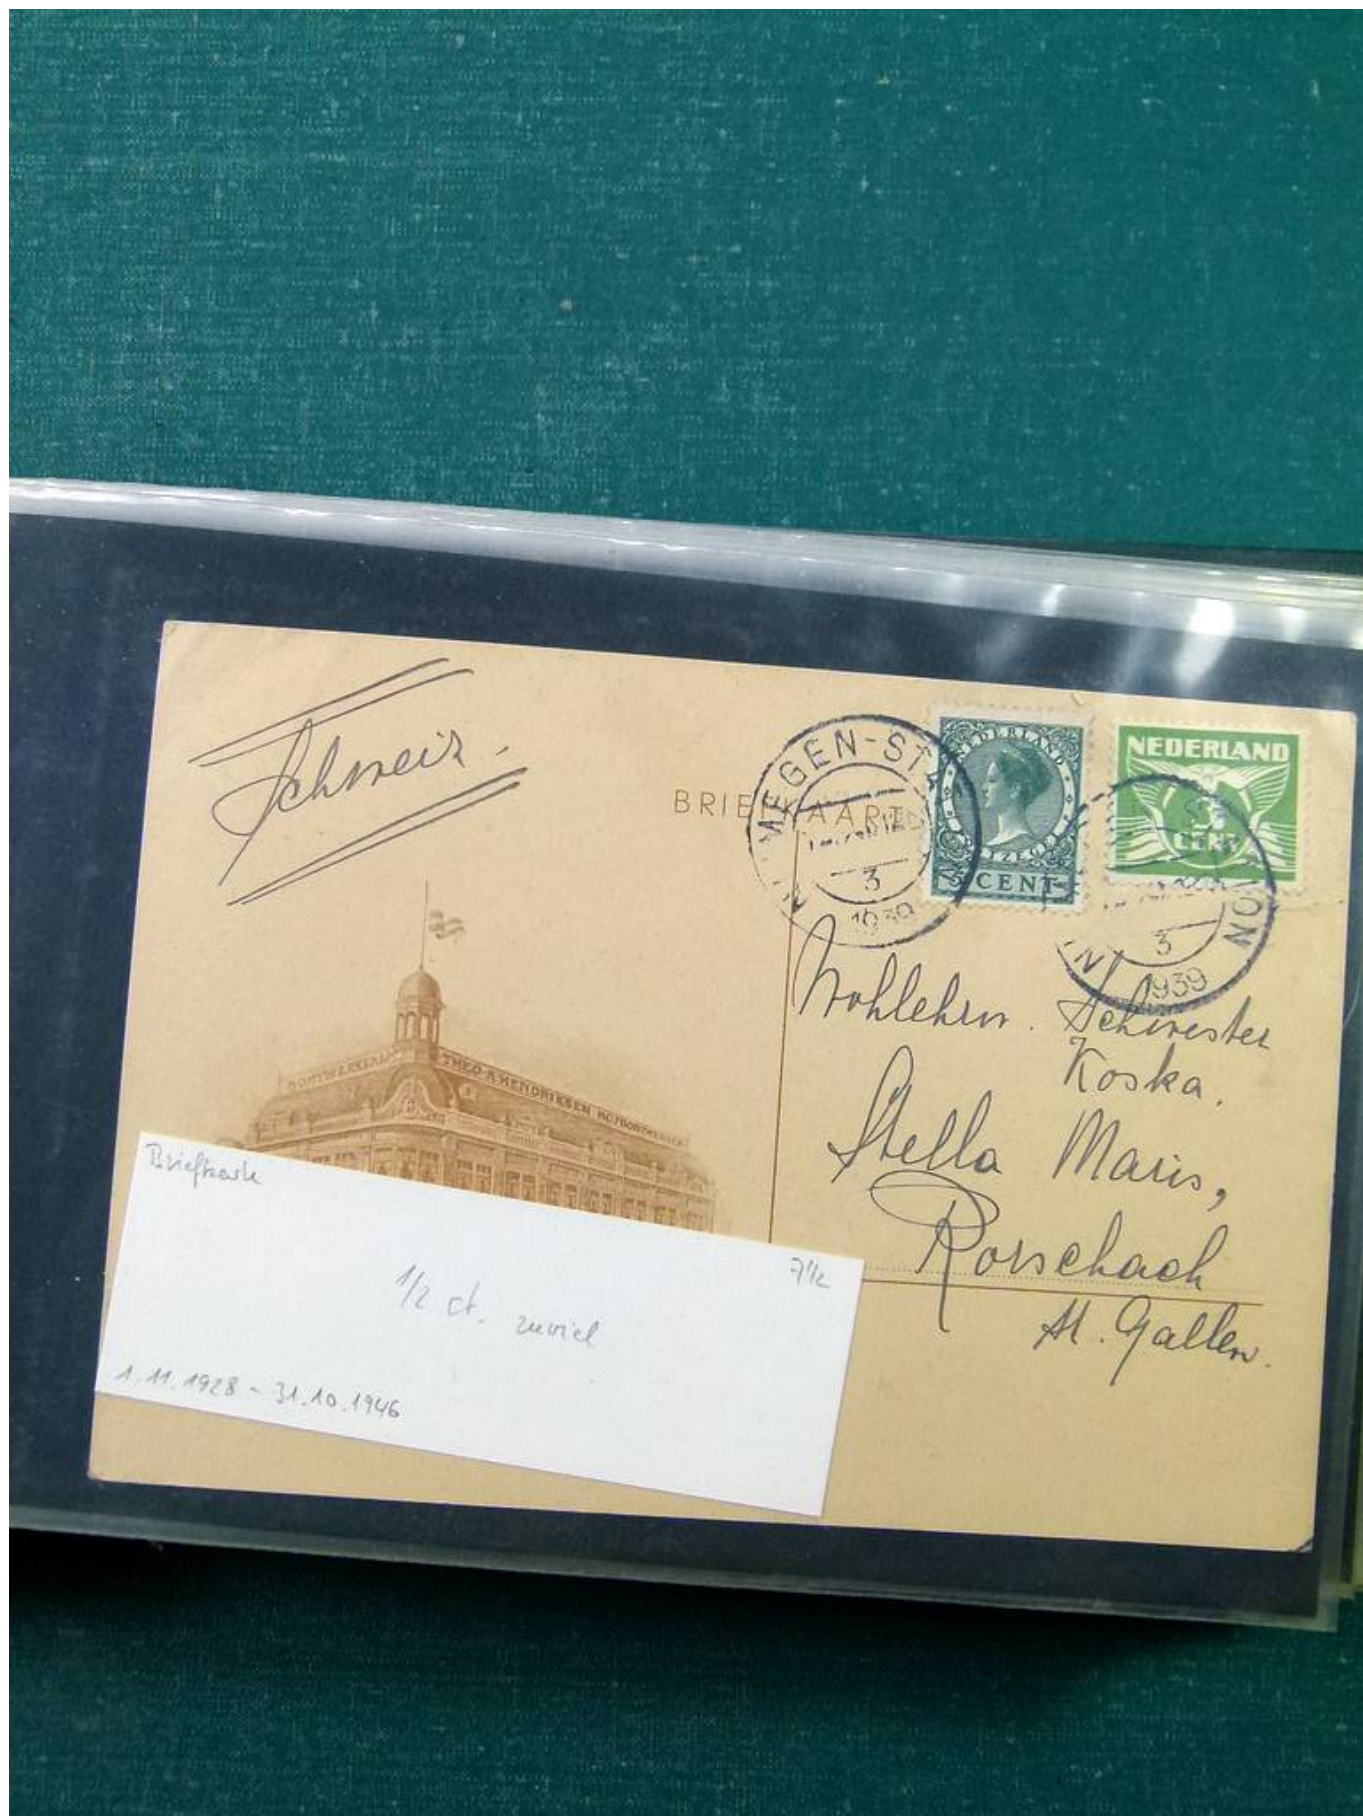 Schweiz.
BRIEFKAART
NIJMEGEN-STATION
3
1939
NEDERLAND
5 CENT
NEDERLAND
CENT
STATION
3
1939
Wohlehrw. Schwester
Koska.
Stella Maris,
Rorschach
St. Gallen.
BONTWERKERIJ
THEO A. HENDRIKSEN
Briefkarte
7 1/2
1/2 ct. zuviel
1.11.1928 - 31.10.1946